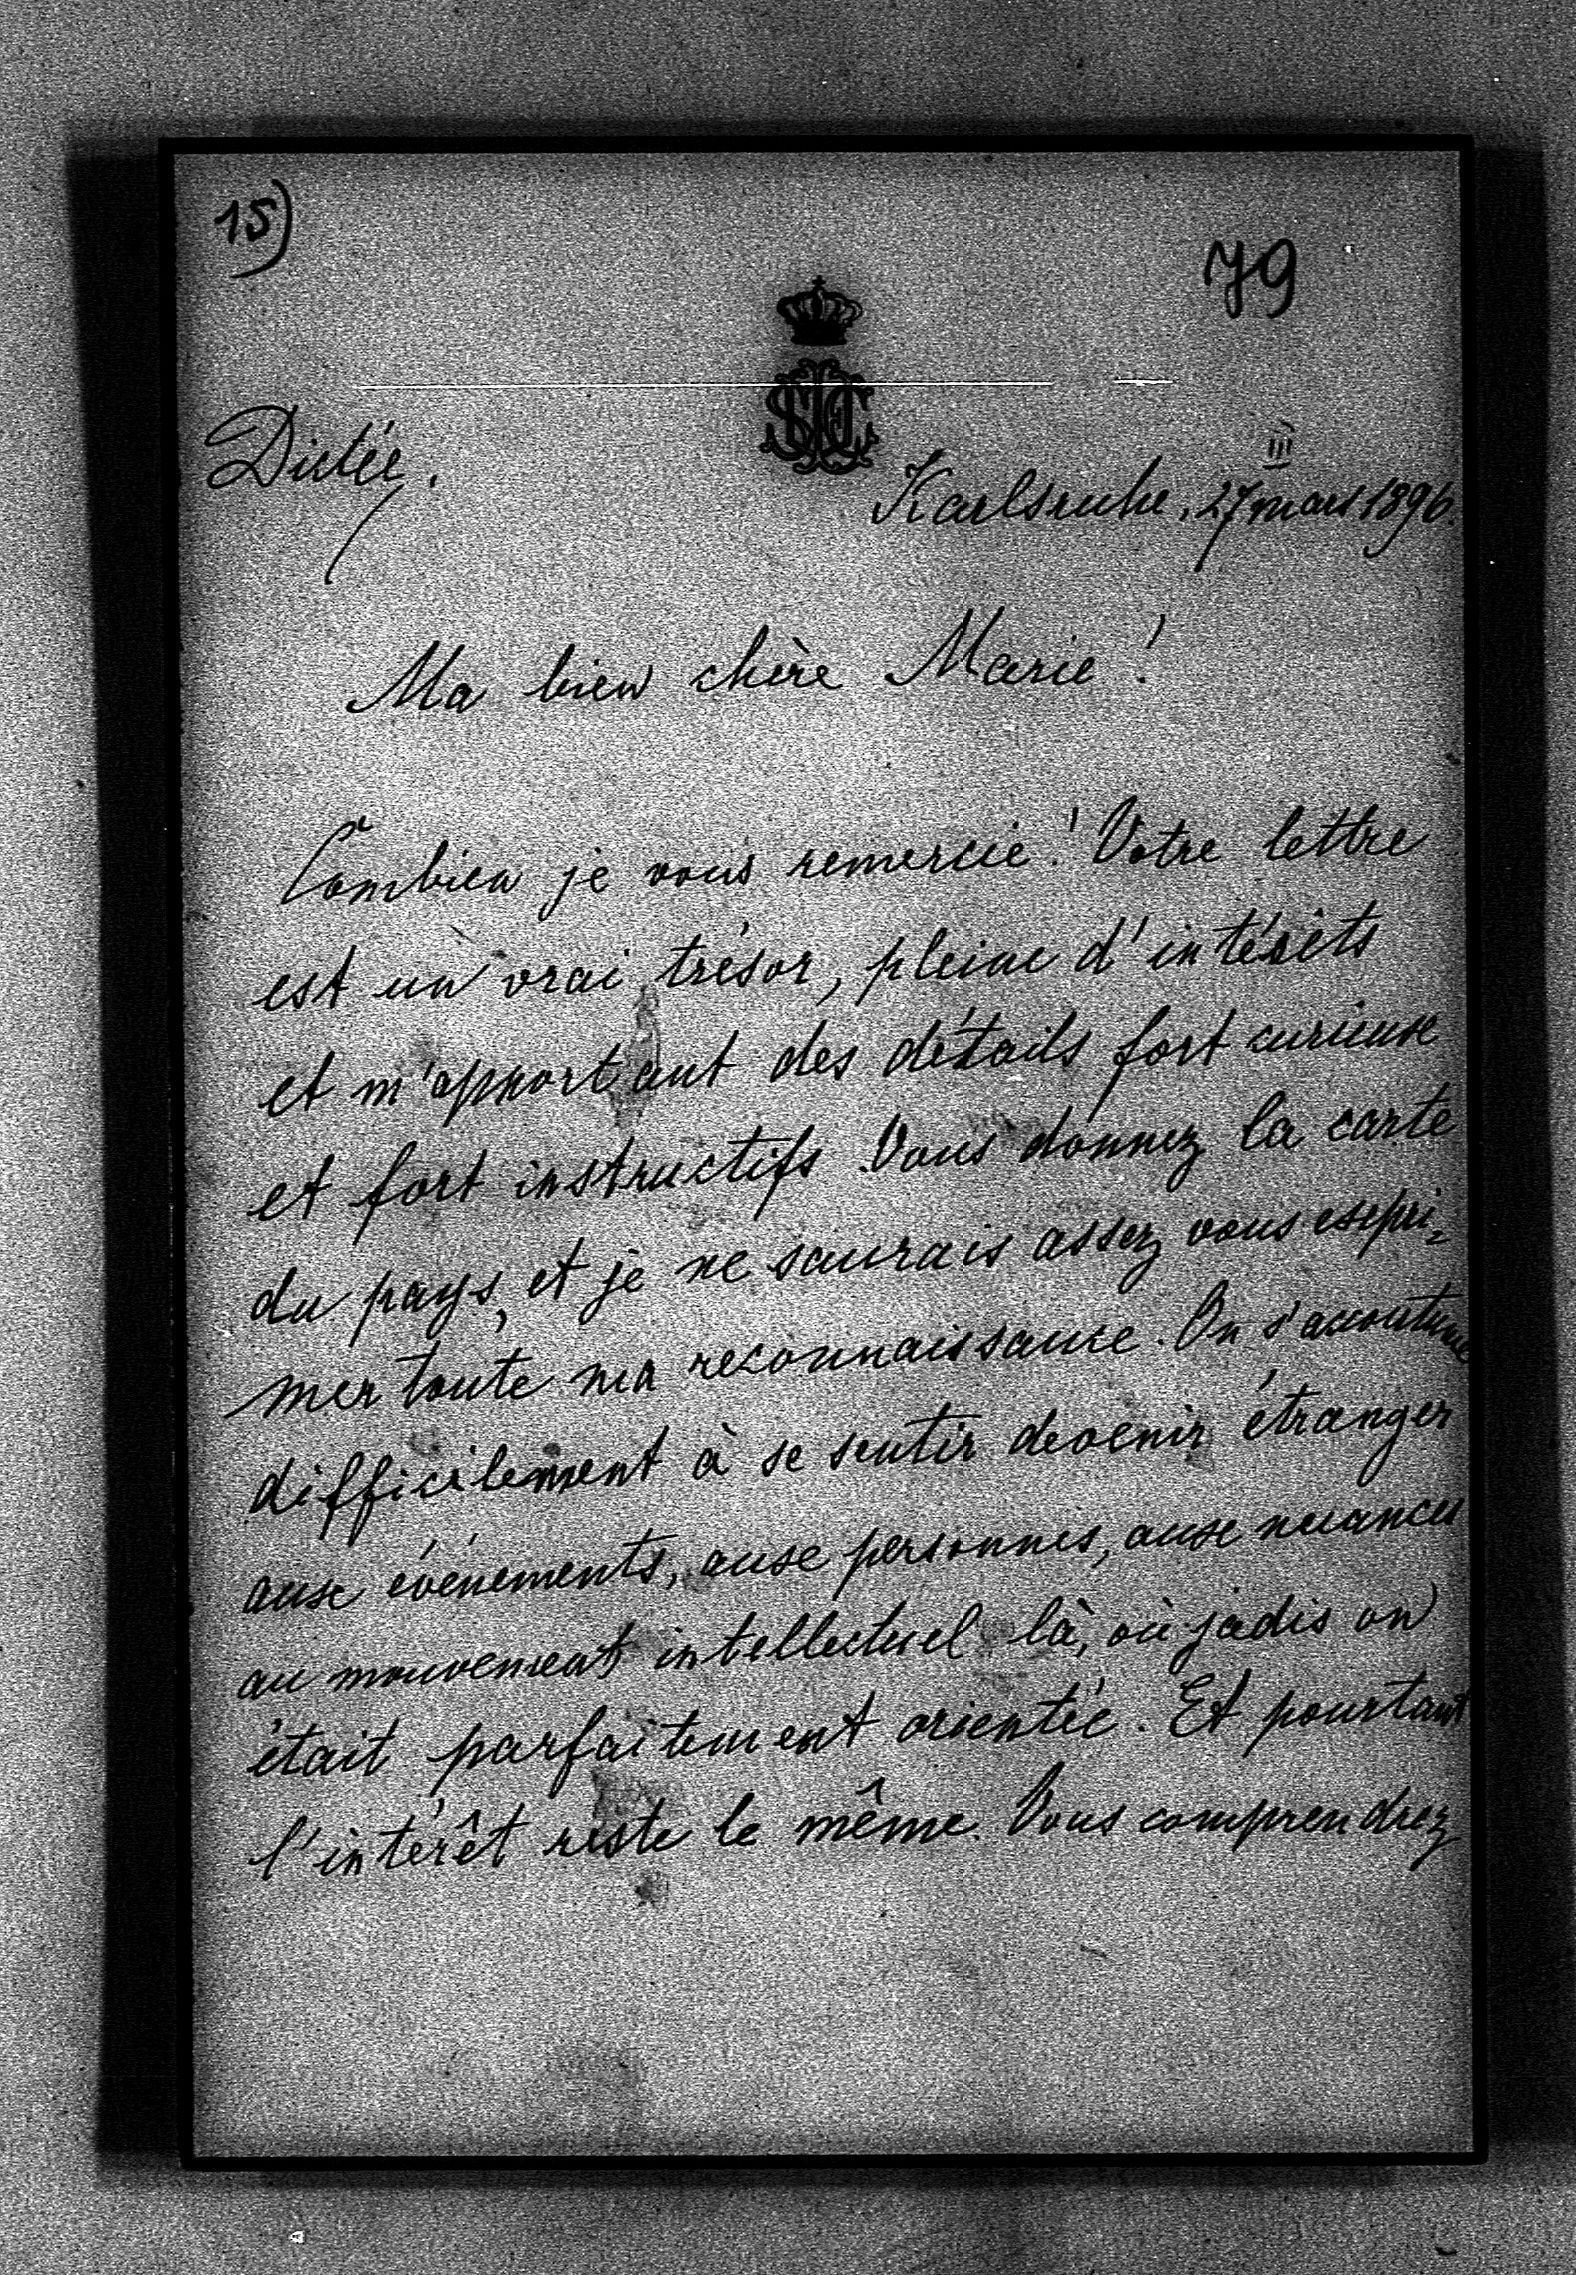 15)
79
Dictée.
III
Karlsruhe, 27 mars 1896.
Ma bien chère Marie!
Combien je vous remercie! Votre lettre
est un vrai trésor, pleine d'intérêts
et m'apportant des détails fort curieux
et fort instructifs. Vous donnez la carte
du pays, et je ne saurais assez vous expri-
mer toute ma reconnaissance. On s'accoutume
difficilement à se sentir devenir étranger
aux événements, aux personnes, aux nuances
au mouvement intellectuel là, où jadis on
était parfaitement orientée. Et pourtant
l'intérêt reste le même. Vous comprendrez